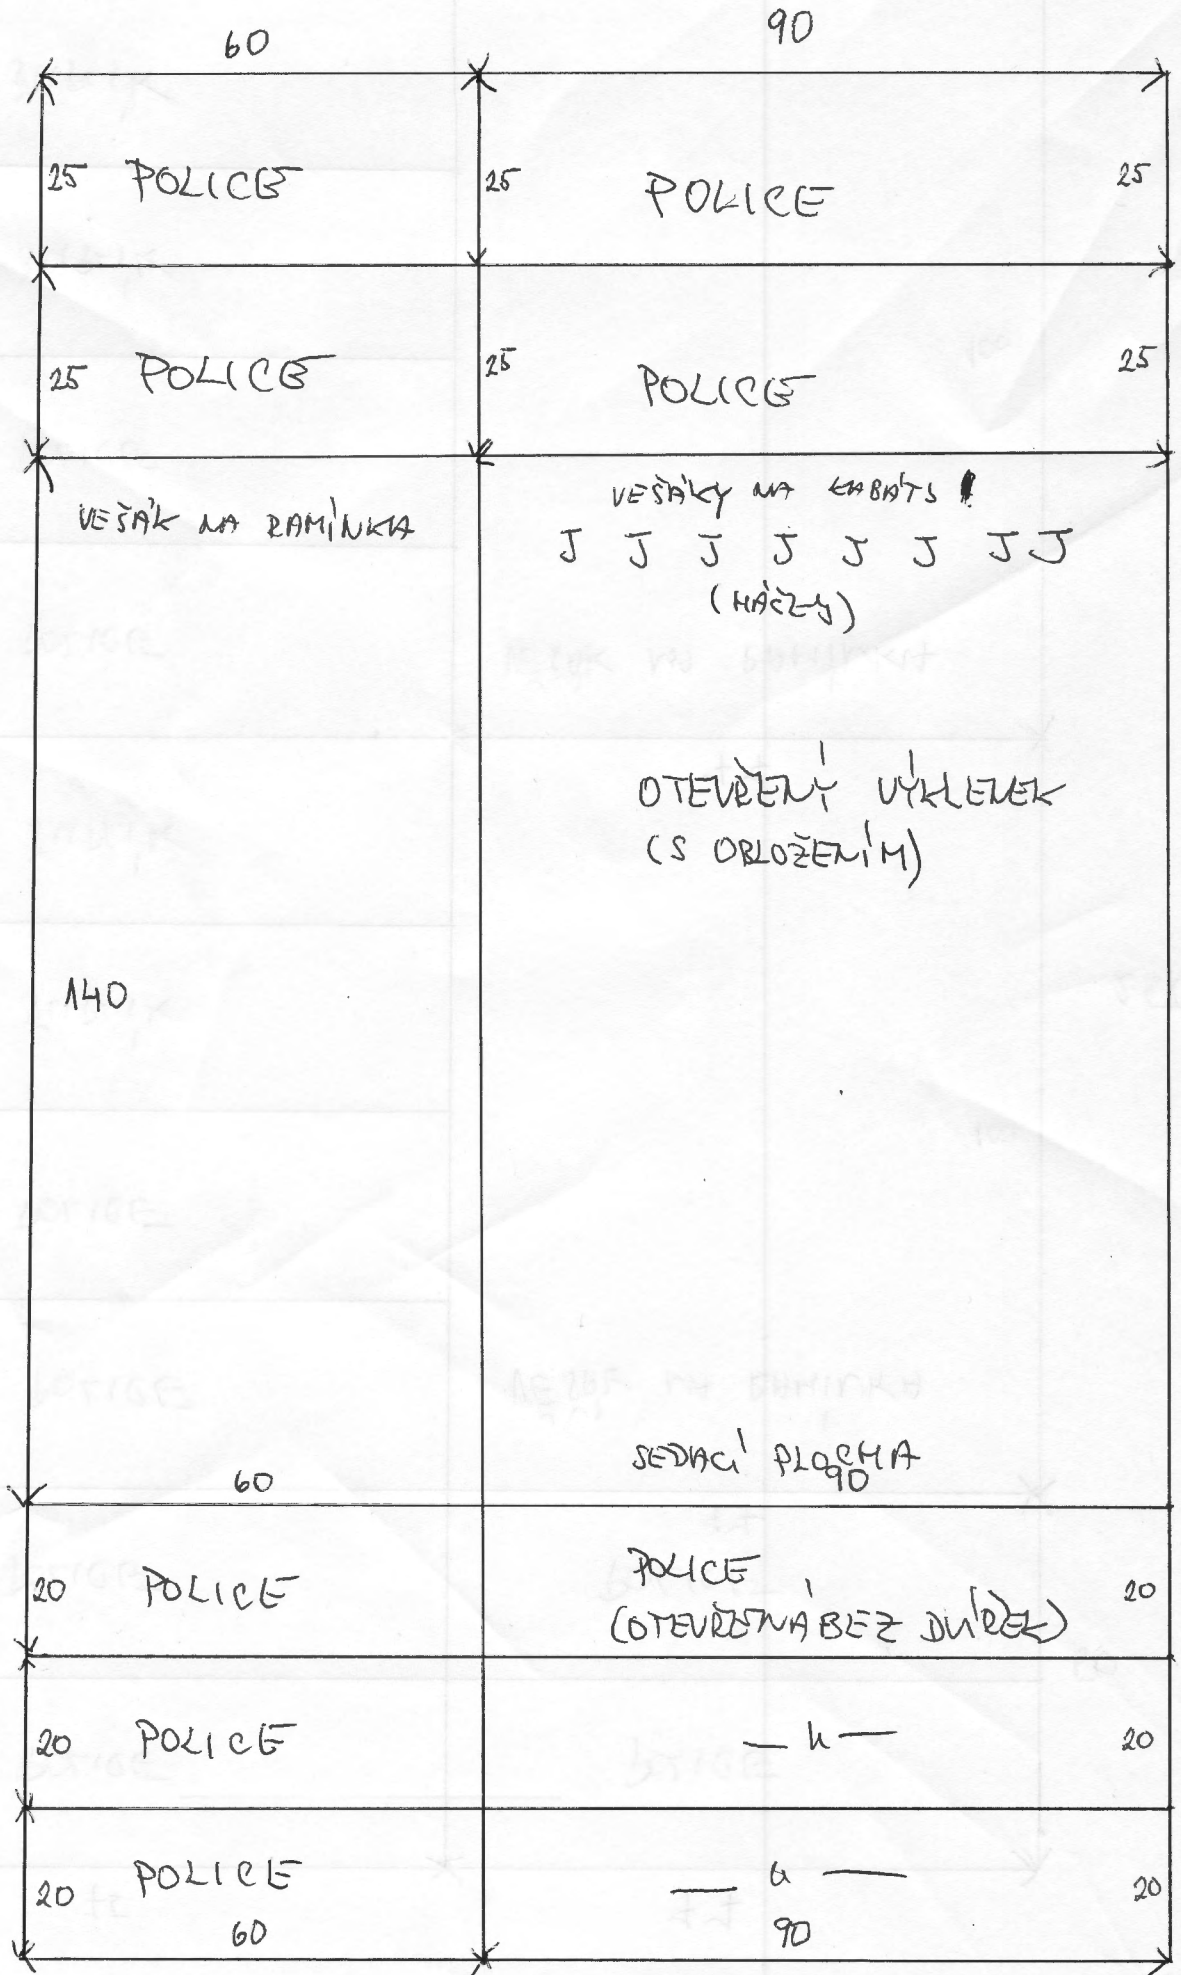 60 90
25 POLICE 25 POLICE 25
25 POLICE 25 POLICE 25
VEŠÁK NA RAMÍNKA
VEŠÁKY NA KABÁTY
J J J J J J J J
(HÁČKY)
OTEVŘENÝ VÝKLENEK
(S OBLOŽENÍM)
140
SEDACÍ PLOCHA
60 90
20 POLICE
POLICE 20
(OTEVŘENÁ BEZ DVÍŘEK)
20 POLICE — 〃 — 20
20 POLICE — 〃 — 20
60 90